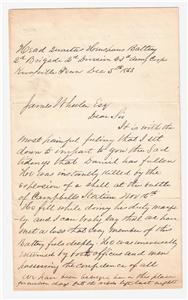 Head Quarters Henshaws Battery
2d Brigade 2d Division 23d Army Corps
Knoxville Tenn Dec 5th 1863
James Wheeler Esq
Dear Sir
It is with the
most painful feeling that I sit
down to impart to you the sad
tidings that Daniel has fallen
He was instantly killed by the
explosion of a shell at the battle
of Campbells Station Nov 16th
He fell while doing his duty
and I can truly say that we have
met a loss that every member of this
Battery feels deeply. He was
esteemed by both officers and men
possessing the confidence of all
We have been in this place
days but the